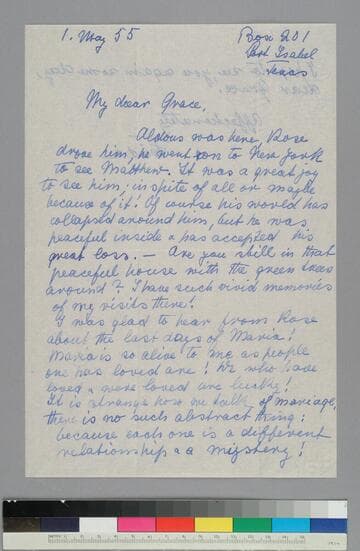 1. May 55
Box 201
Port Isabel
Texas
My dear Grace,
Aldous was here, Rose
drove him, he went on to New York
to see Matthew. It was a great joy
to see him, inspite of all or maybe
because of it! Of course his world has
collapsed around him, but he was
peaceful inside & has accepted his
great loss. — Are you still in that
peaceful house with the green trees
around? I have such vivid memories
of my visits there!
I was glad to hear from Rose
about the last days of Maria!
Maria is so alive to me as people
one has loved are! We who have
loved & were loved are lucky!
It is strange how we talk of marriage,
there is no such abstract thing:
because each one is a different
relationship & a mystery!